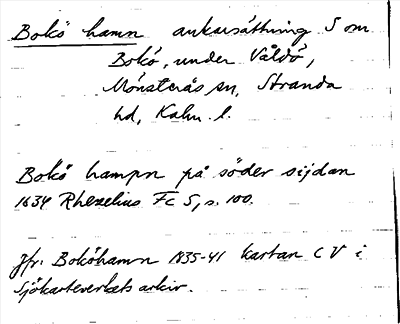 Bokö hamn ankarsättning S om
Bokö, under Våldö,
Mönsterås sn, Stranda
hd, Kalm. l.
Bokö hampn på söder sijdan
1634 Rhezelius Fc 5, s. 100.
Jfr. Boköhamn 1835-41 kartan C V i
Sjökarteverkets arkiv.